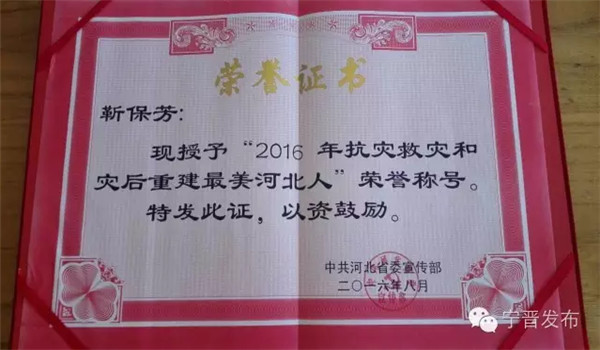 荣誉证书
靳保芳：
现授予“2016 年抗灾救灾和
灾后重建最美河北人”荣誉称号。
特发此证，以资鼓励。
中共河北省委宣传部
二〇一六年八月
宁晋发布